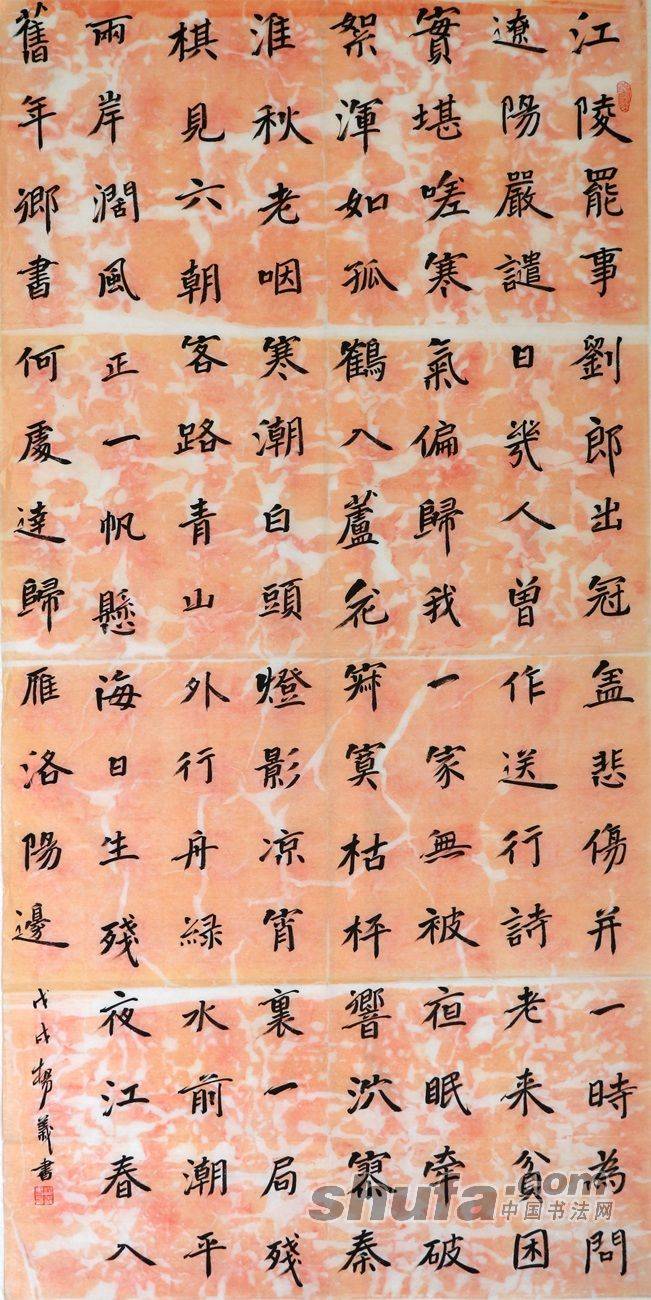 江陵罷事劉郎出冠盖悲傷并一時為問
遼陽嚴譴日幾人曾作送行詩老来貧困
實堪嗟寒氣偏歸我一家無被夜眠牽破
絮渾如孤鶴入蘆花寂寞枯枰響泬寥秦
淮秋老咽寒潮白頭燈影凉宵裏一局殘
棋見六朝客路青山外行舟緑水前潮平
兩岸濶風正一帆懸海日生殘夜江春入
舊年鄉書何處達歸雁洛陽邊
戊戌楊義書
shufa.com
中国书法网